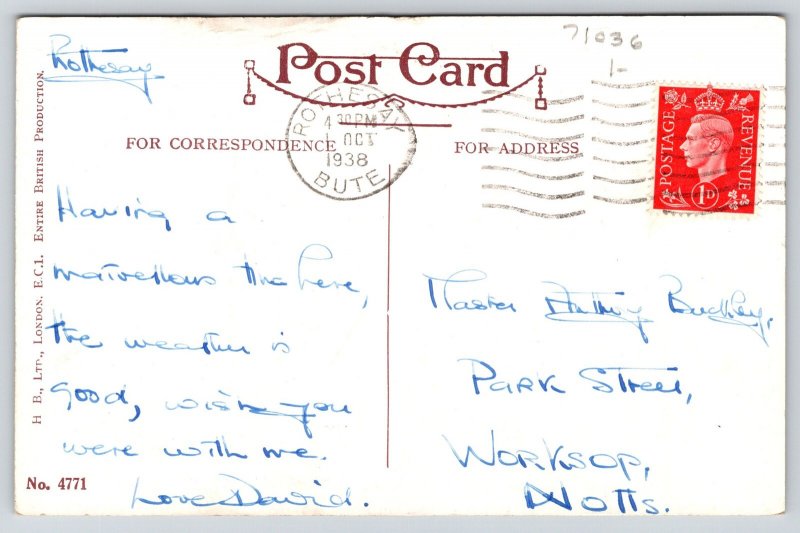 Rothesay
71036
1-
Post Card
ROTHESAY
4 30 PM
1 OCT
1938
BUTE
POSTAGE
REVENUE
1D
FOR CORRESPONDENCE
FOR ADDRESS
H B., LTD., LONDON, E.C.1. ENTIRE BRITISH PRODUCTION.
Having a
marvellous time here,
the weather is
good, wish you
were with me.
Love David.
No. 4771
Master Anthony Buckley,
PARK STREET,
WORKSOP,
NOTTS.